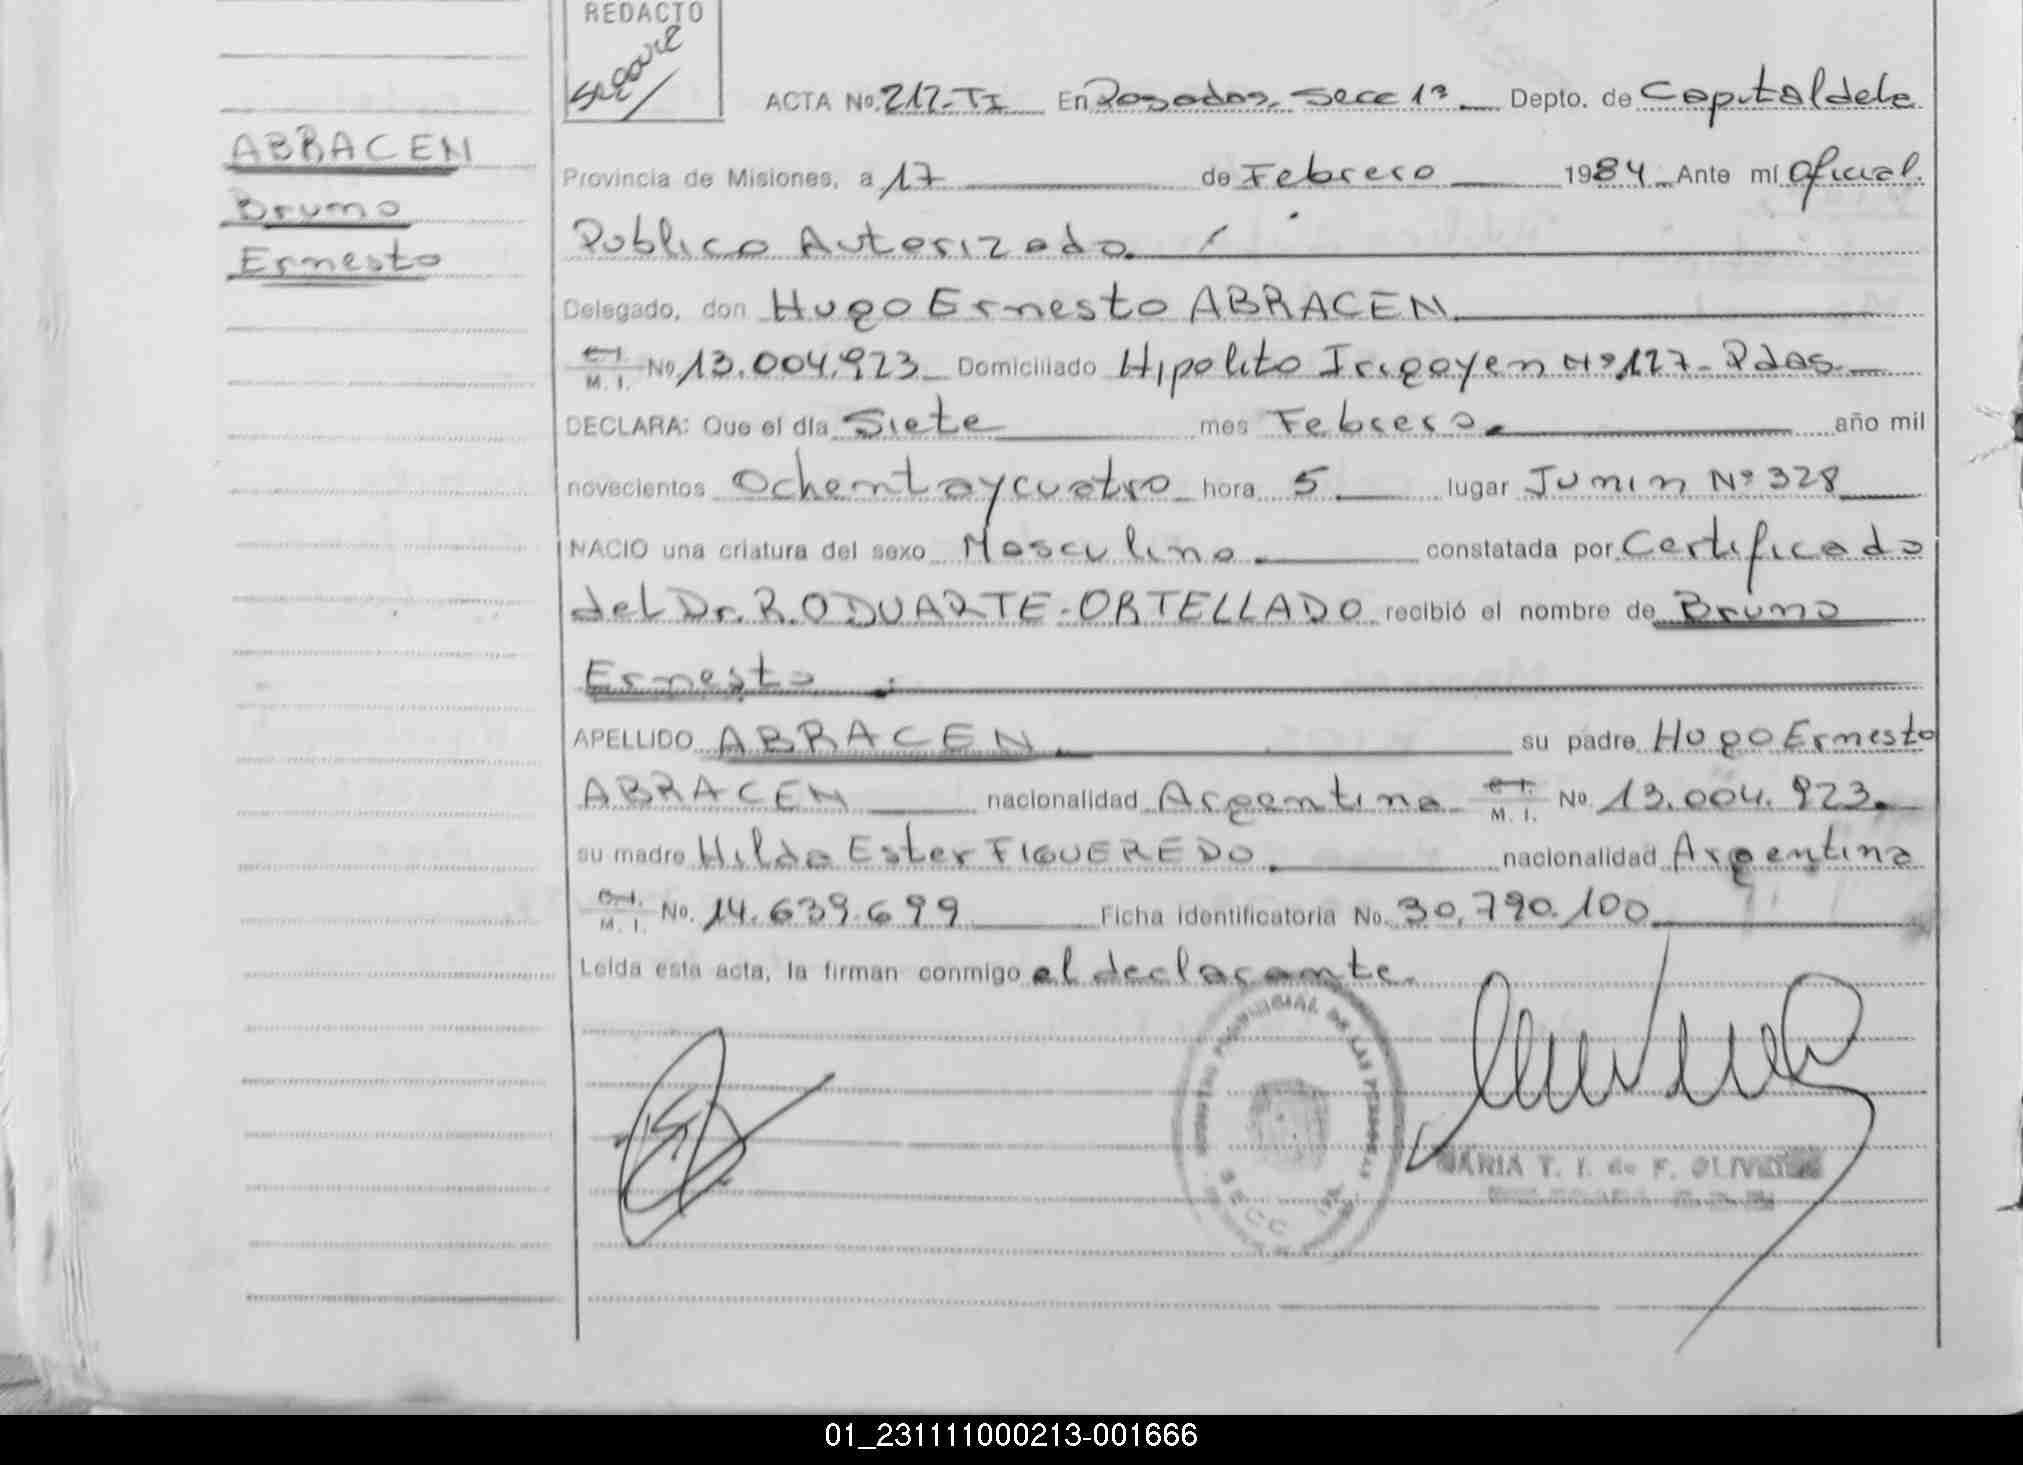 REDACTO
ACTA No. 217-TI En Posadas, Secc 1ª Depto. de Capital de la
ABRACEN
Bruno
Ernesto
Provincia de Misiones, a 17 de Febrero 1984 Ante mí Oficial
Publico Autorizado.
Delegado, don Hugo Ernesto ABRACEN
C.I. M. I. No 13.004.923 Domiciliado Hipolito Irigoyen Nº 127- Pdas.
DECLARA: Que el día Siete mes Febrero. año mil
novecientos Ochenta y cuatro hora 5 lugar Junin Nº 328
NACIO una criatura del sexo Masculino constatada por Certificado
del Dr. R. O DUARTE-ORTELLADO recibió el nombre de Bruno
Ernesto
APELLIDO ABRACEN su padre Hugo Ernesto
ABRACEN nacionalidad Argentina C.I. M. I. No. 13.004.923.
su madre Hilda Ester FIGUEREDO. nacionalidad Argentina
C.I. M. I. No. 14.639.699 Ficha identificatoria No. 30.790.100
Leída esta acta, la firman conmigo el declarante.
REGISTRO PROVINCIAL DE LAS PERSONAS
SECC 1ra.
MARIA T. I. de F. OLIVEIRA
01_231111000213-001666